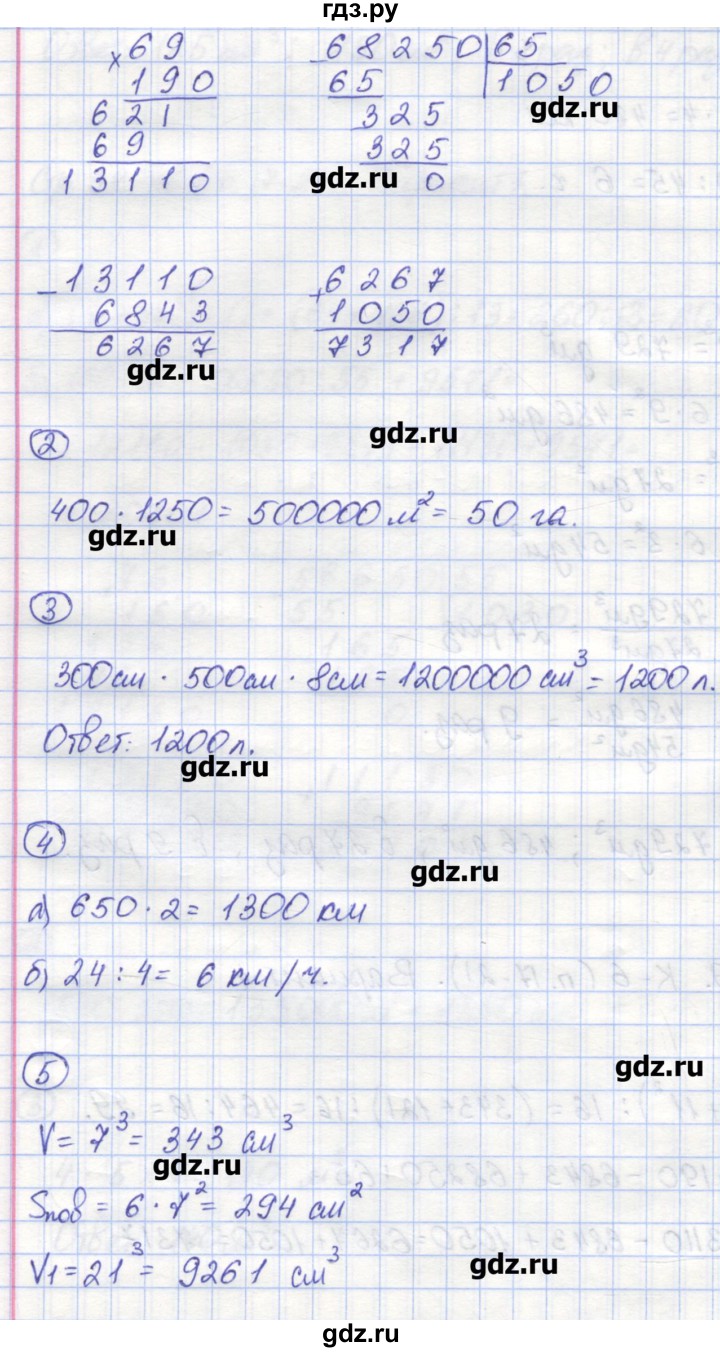 гдз.ру
× 69
190
621
69
13110
- 68250 | 65
65 | 1050
gdz.ru
325
325
gdz.ru
0
- 13110
6843
6267
gdz.ru
+ 6267
1050
7317
gdz.ru
2
400 · 1250 = 500000 м² = 50 га.
gdz.ru
3
300см · 500см · 8см = 1200000 см³ = 1200 л.
Ответ: 1200 л.
gdz.ru
4
gdz.ru
а) 650 · 2 = 1300 км
б) 24 : 4 = 6 км/ч.
5
gdz.ru
V = 7³ = 343 см³
gdz.ru
Sпов = 6 · 7² = 294 см²
V1 = 21³ = 9261 см³
gdz.ru
gdz.ru